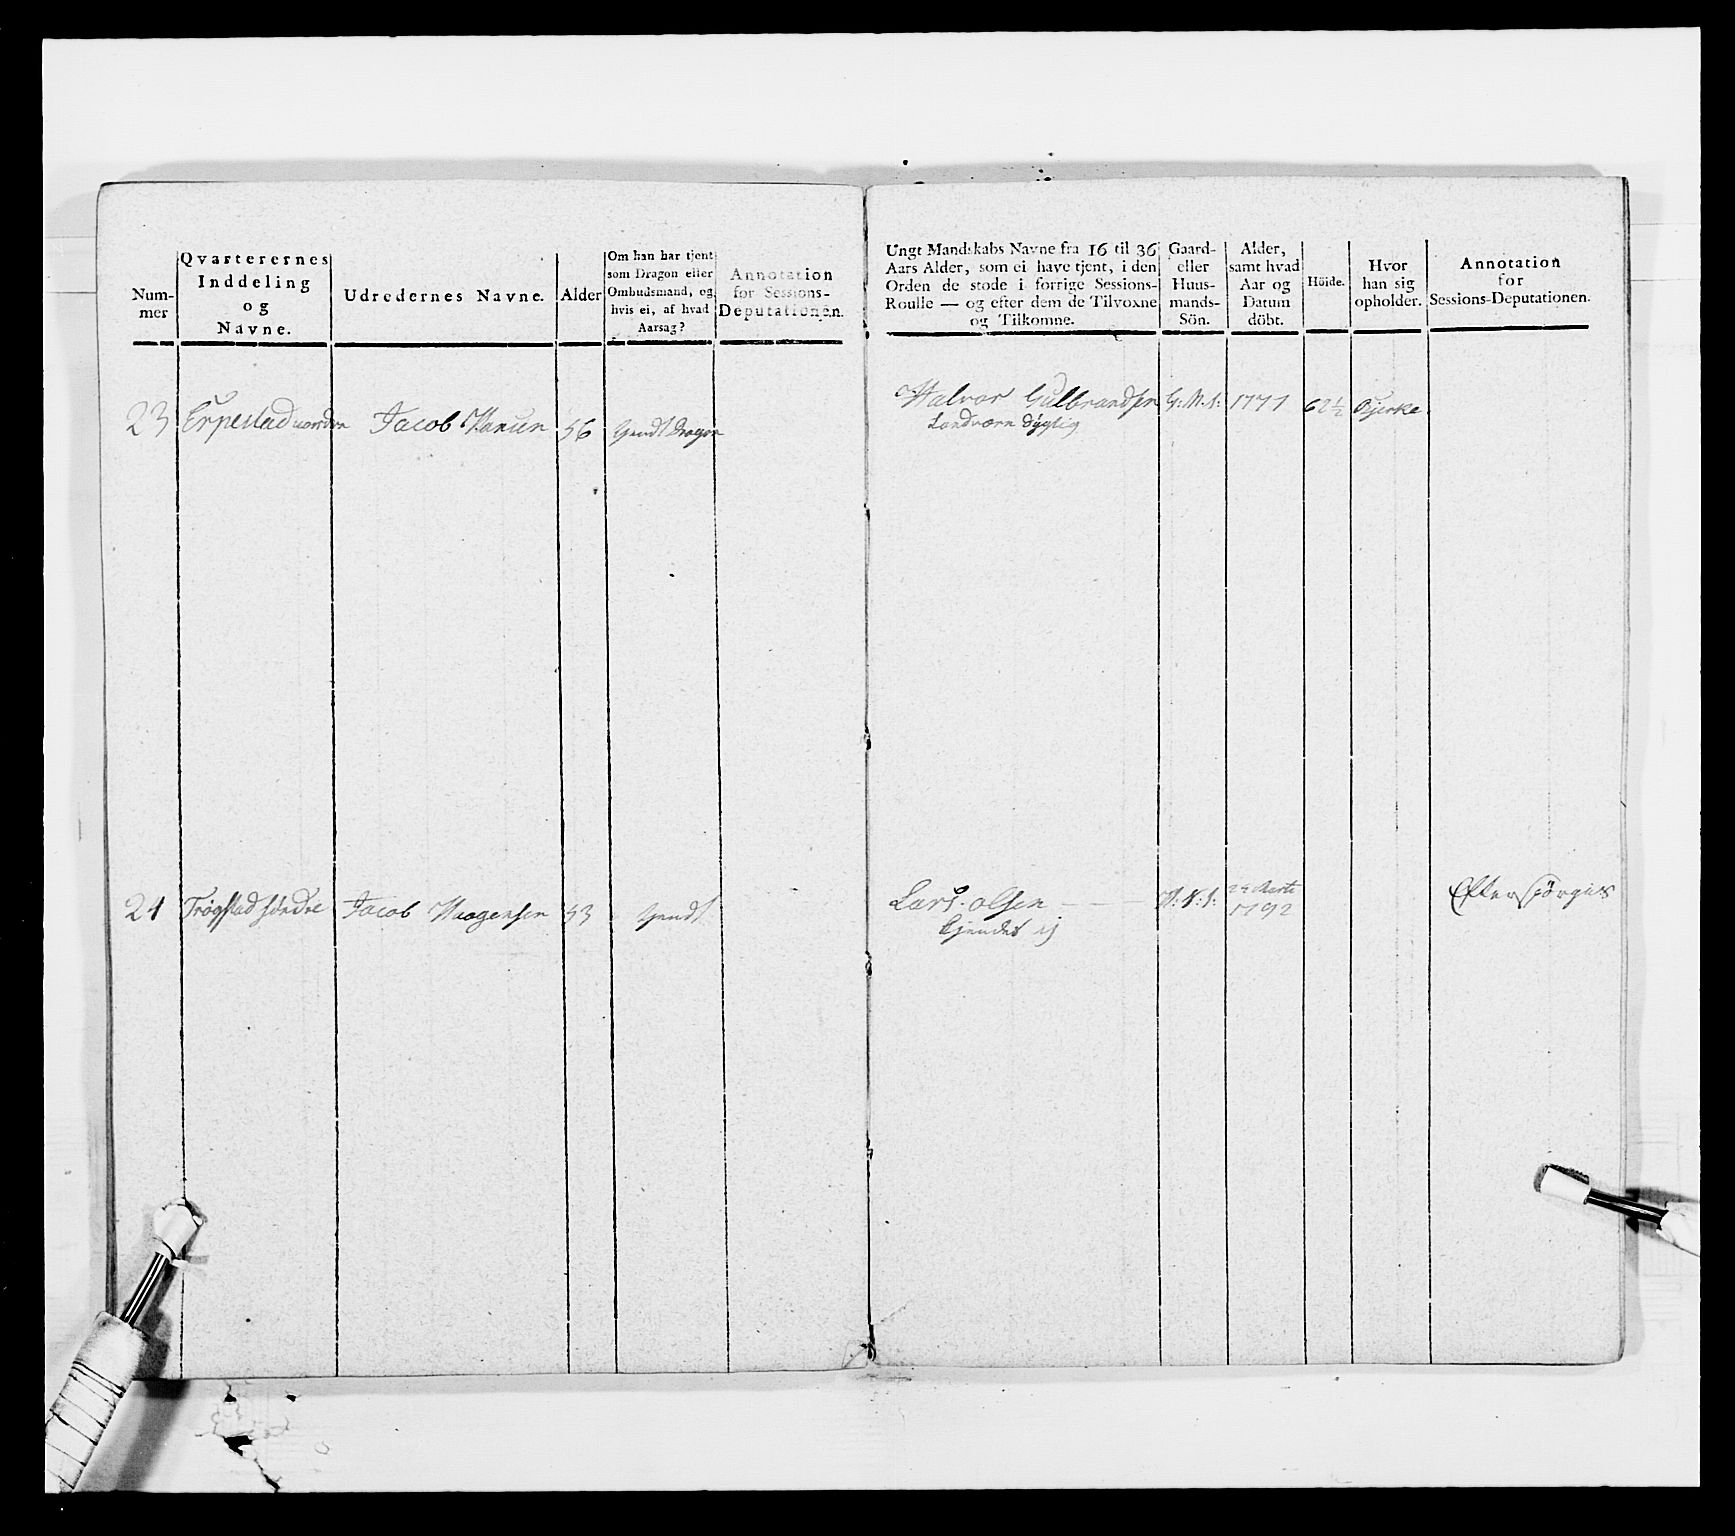 Num-
mer
Qvarterernes
Inddeling
og
Navne.
Udredernes Navne.
Alder
Om han har tjent
som Dragon eller
Ombudsmand, og
hvis ei, af hvad
Aarsag?
Annotation
for Sessions-
Deputationen.
23 Erpestad nordre Jacob Hansen 56 tjendt Dragon
24 Trøgstad søndre Jacob Haagensen 53 tjendt
Ungt Mandskabs Navne fra 16 til 36
Aars Alder, som ei have tjent, i den
Orden de stode i forrige Sessions-
Roulle — og efter dem de Tilvoxne
og Tilkomne.
Gaard-
eller
Huus-
mands-
Sön.
Alder,
samt hvad
Aar og
Datum
döbt.
Höide.
Hvor
han sig
opholder.
Annotation
for
Sessions-Deputationen.
Halvor Gulbrandsen G: M: S: 1771 62½ Bjerke
Landværn dygtig
Lars Olsen — — 24 Marti
1792 Efterspørges
kjendes ej